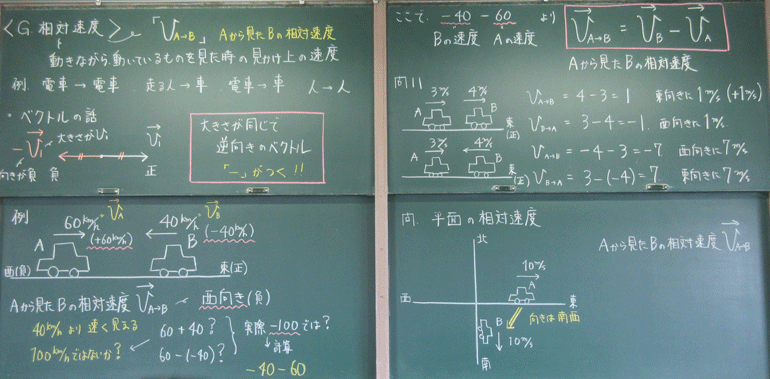 〈G 相対速度〉 「V A→B」 Aから見たBの相対速度
動きながら、動いているものを見た時の見かけ上の速度
例. 電車→電車. 走る人→車. 電車→車 人→人
・ベクトルの話
大きさがVi
-Vi
Vi
向きが負 負 正
大きさが同じで
逆向きのベクトル
「-」がつく!!
例
60km/h VA 40km/h VB
A (+60km/h) B (-40km/h)
西(負) 東(正)
Aから見たBの相対速度 V A→B 西向き(負)
40km/hより速く見える 60+40? 実際 -100では?
100km/hではないか? 60-(-40)? 計算
-40-60
ここで、-40-60 より V A→B = VB - VA
Bの速度 Aの速度
Aから見たBの相対速度
問11
3m/s 4m/s
A B 東(正)
V A→B = 4-3=1 東向きに1m/s (+1m/s)
V B→A = 3-4=-1. 西向きに1m/s
3m/s 4m/s
A B 東(正)
V A→B = -4-3=-7 西向きに7m/s
V B→A = 3-(-4)=7 東向きに7m/s
問. 平面の相対速度
Aから見たBの相対速度 V A→B
北
10m/s
A
西 東
向きは南西
B
10m/s
南